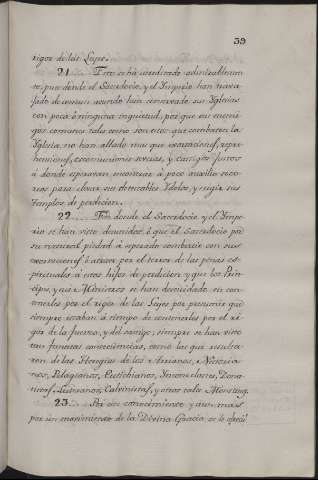 39
rigor de las Leyes.
21. Esto se há acreditado admirablemen
te, pues donde el Sacerdocio, y el Imperio han traba
jado de comun acuerdo han conservado sus Iglesias
con poca ó ninguna inquietud, por que sus enemi
gos comunes tales como son estos que combaten la
Iglesia no han allado mas que execraciones, repre
hensiones, excomuniones severas, y castigos justos
á donde esperavan encontrar á poco auxilio
para elevar sus detestables Ydolos, y regir sus
Templos de perdicion.
22. Pero donde el Sacerdocio y el Impe
rio se han visto desunidos, ó que el Sacerdocio por
su natural piedad á esperado combatir con sus
ó atraer por el terror de las penas es
pirituales á estos hijos de perdicion y que los Prin
cipes, y sus Ministros se han descuidado en con
tenerlos por el rigor de las Leyes por presumir que
siempre estaban á tiempo de contenerlos por el ri
gor de la fuerza, y del castigo; siempre se han visto
tan funestas consecuencias, como las que resulta
ron de las Heregias de los Arrianos, Nestoria
nos, Pelagianos, Eutichianos, Iconoclastas, Dona
tistas, Luteranos, Calvinistas, y otros tales Monstruos.
23. Por este conocimiento y aun mas
por un movimiento de la Divina Gracia se le ofreció